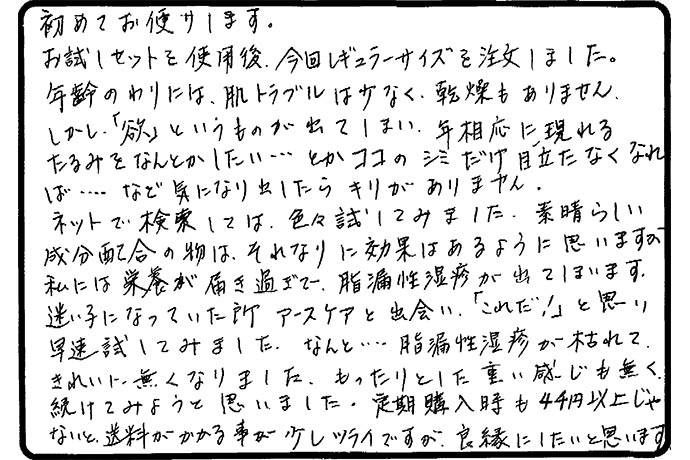 初めてお便りします。
お試しセットを使用後、今回レギュラーサイズを注文しました。
年齢のわりには、肌トラブルは少なく、乾燥もありません。
しかし、「欲」というものが出てしまい、年相応に現れる
たるみをなんとかしたい…とかココのシミだけ目立たなくなれ
ば…‥など気になり出したらキリがありません。
ネットで検索しては、色々試してみました。素晴らしい
成分配合の物は、それなりに効果はあるように思いますが
私には栄養が届き過ぎて、脂漏性湿疹が出てしまいます。
迷い子になっていた所 アースケアと出会い、「これだ!」と思い
早速試してみました。なんと…脂漏性湿疹が枯れて、
きれいに無くなりました。もったりとした重い感じも無く、
続けてみようと思いました。定期購入時も4千円以上じゃ
ないと、送料がかかる事が少しツライですが、良縁にしたいと思います